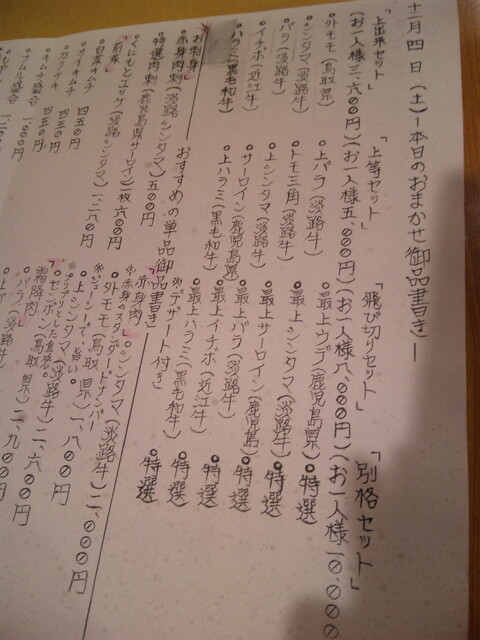 十二月四日(土)ー本日のおまかせ御品書きー
「上出来セット」
(お一人様三、六〇〇円)
○外モモ(鳥取県)
○シンタマ(淡路牛)
○バラ(淡路牛)
○イチボ(近江牛)
○ハラミ(黒毛和牛)
「上等セット」
(お一人様五、〇〇〇円)
○上バラ(淡路牛)
○トモ三角(淡路牛)
○上シンタマ(淡路牛)
○サーロイン(鹿児島県)
○上ハラミ(黒毛和牛)
「飛び切りセット」
(お一人様八、〇〇〇円)
○最上ウデ(鹿児島県)
○最上シンタマ(淡路牛)
○最上サーロイン(鹿児島)
○最上バラ(淡路牛)
○最上イチボ(近江牛)
○最上ハラミ(黒毛和牛)
※デザート付き
「別格セット」
(お一人様一〇、〇〇〇
○特選
○特選
○特選
○特選
○特選
○特選
おすすめの単品御品書き
「お刺身」
○赤身肉刺(淡路シンタマ)五〇〇円
○特選肉刺(鹿児島県サーロイン)一枚六〇〇円
○くにもとユッケ(淡路シンタマ)一、二八〇円
「前菜」
○白菜キムチ 四五〇円
○オイキムチ 四五〇円
○カクテキ 四五〇円
○キムチ盛合 一、〇〇〇円
○ナムル盛合
「赤身肉」
○シンタマ(淡路牛)二、〇〇〇円
※赤身のスタンダードナンバー
○外モモ(鳥取県)一、八〇〇円
※ジューシーで、旨い。
○上シンタマ(淡路牛)二、六〇〇円
○センボン(鳥取県)二、九〇〇円
「霜降肉」
○バラ(淡
○上バ